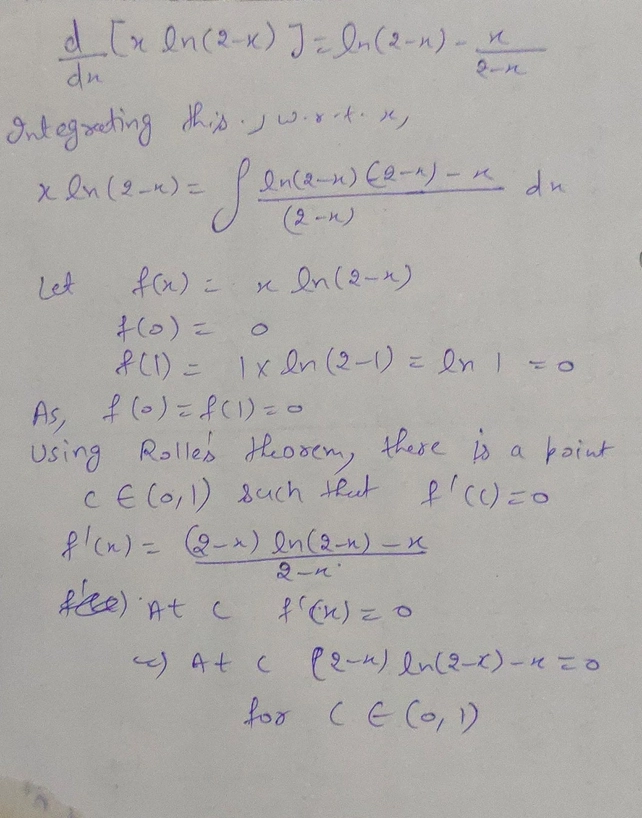 d/dx [x ln(2-x)] = ln(2-x) - x/(2-x)
Integrating this, w.r.t. x,
x ln(2-x) = ∫ (ln(2-x) (2-x) - x)/(2-x) dx
Let f(x) = x ln(2-x)
f(0) = 0
f(1) = 1 x ln(2-1) = ln 1 = 0
As, f(0) = f(1) = 0
Using Rolle's theorem, there is a point
C ∈ (0,1) such that f'(c) = 0
f'(x) = ((2-x) ln(2-x) - x)/(2-x)
At C f'(x) = 0
=) At C (2-x) ln(2-x) - x = 0
for C ∈ (0,1)